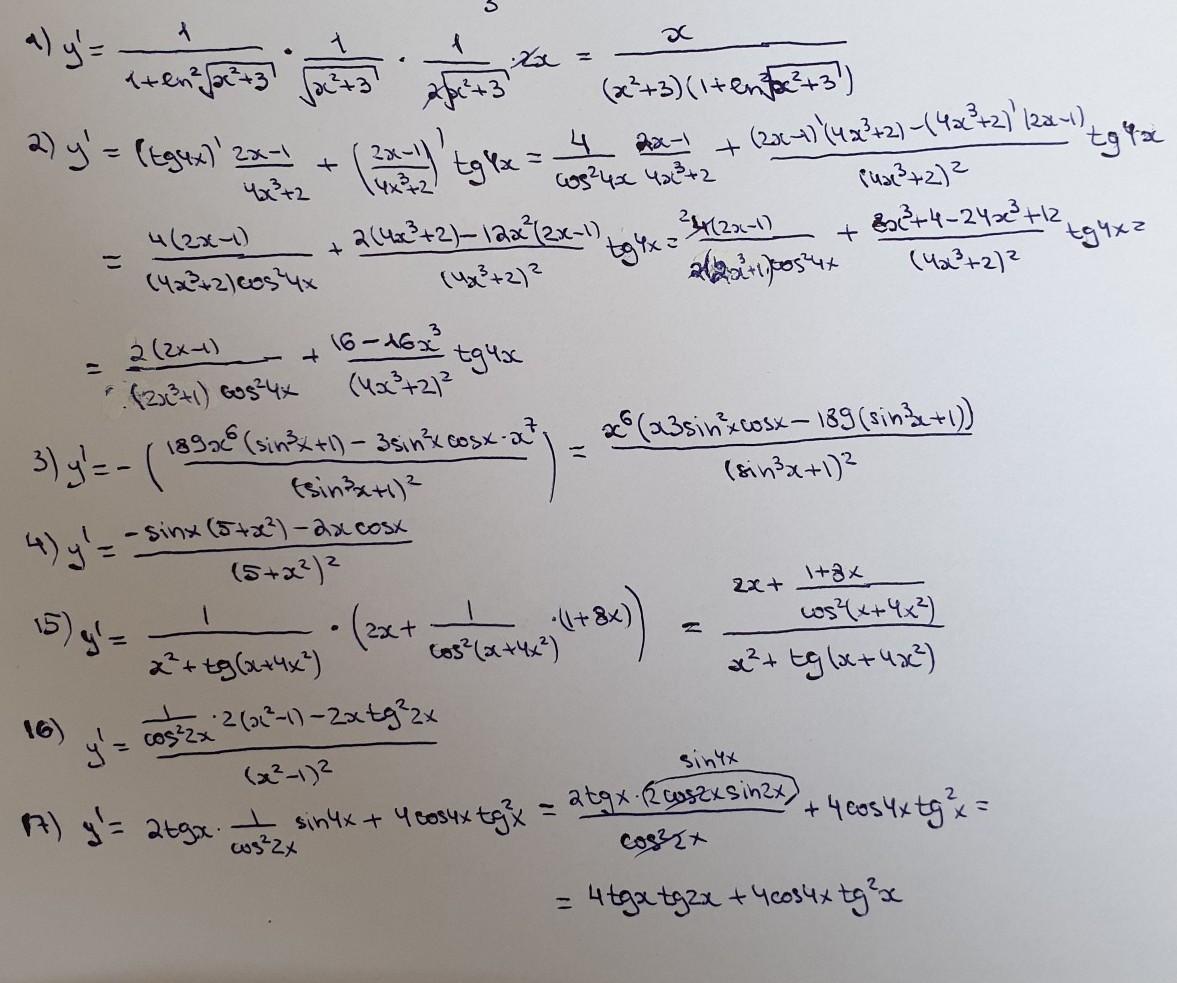 1) y' = 1/(1+ln²√(x²+3)) · 1/√(x²+3) · 1/(2√(x²+3)) · 2x = x/((x²+3)(1+ln²√(x²+3)))
2) y' = (tg4x)' (2x-1)/(4x³+2) + ((2x-1)/(4x³+2))' tg4x = 4/(cos²4x) (2x-1)/(4x³+2) + ((2x-1)'(4x³+2)-(4x³+2)'(2x-1))/(4x³+2)² tg4x
= 4(2x-1)/((4x³+2)cos²4x) + (2(4x³+2)-12x²(2x-1))/(4x³+2)² tg4x = 4(2x-1)/(2(2x³+1)cos²4x) + (8x³+4-24x³+12)/(4x³+2)² tg4x =
= 2(2x-1)/((2x³+1)cos²4x) + (16-16x³)/(4x³+2)² tg4x
3) y' = -((189x⁶(sin³x+1)-3sin²xcosx·x⁷)/(sin³x+1)²) = x⁶(x3sin²xcosx-189(sin³x+1))/(sin³x+1)²
4) y' = (-sinx(5+x²)-2xcosx)/(5+x²)²
15) y' = 1/(x²+tg(x+4x²)) · (2x + 1/(cos²(x+4x²)) · (1+8x)) = (2x + (1+8x)/(cos²(x+4x²)))/(x²+tg(x+4x²))
16) y' = (1/(cos²2x) · 2(x²-1)-2xtg²2x)/(x²-1)²
sin4x
17) y' = 2tgx · 1/(cos²2x) sin4x + 4cos4xtg²x = 2tgx·(2cos2xsin2x)/(cos²2x) + 4cos4xtg²x =
= 4tgxtg2x + 4cos4xtg²x